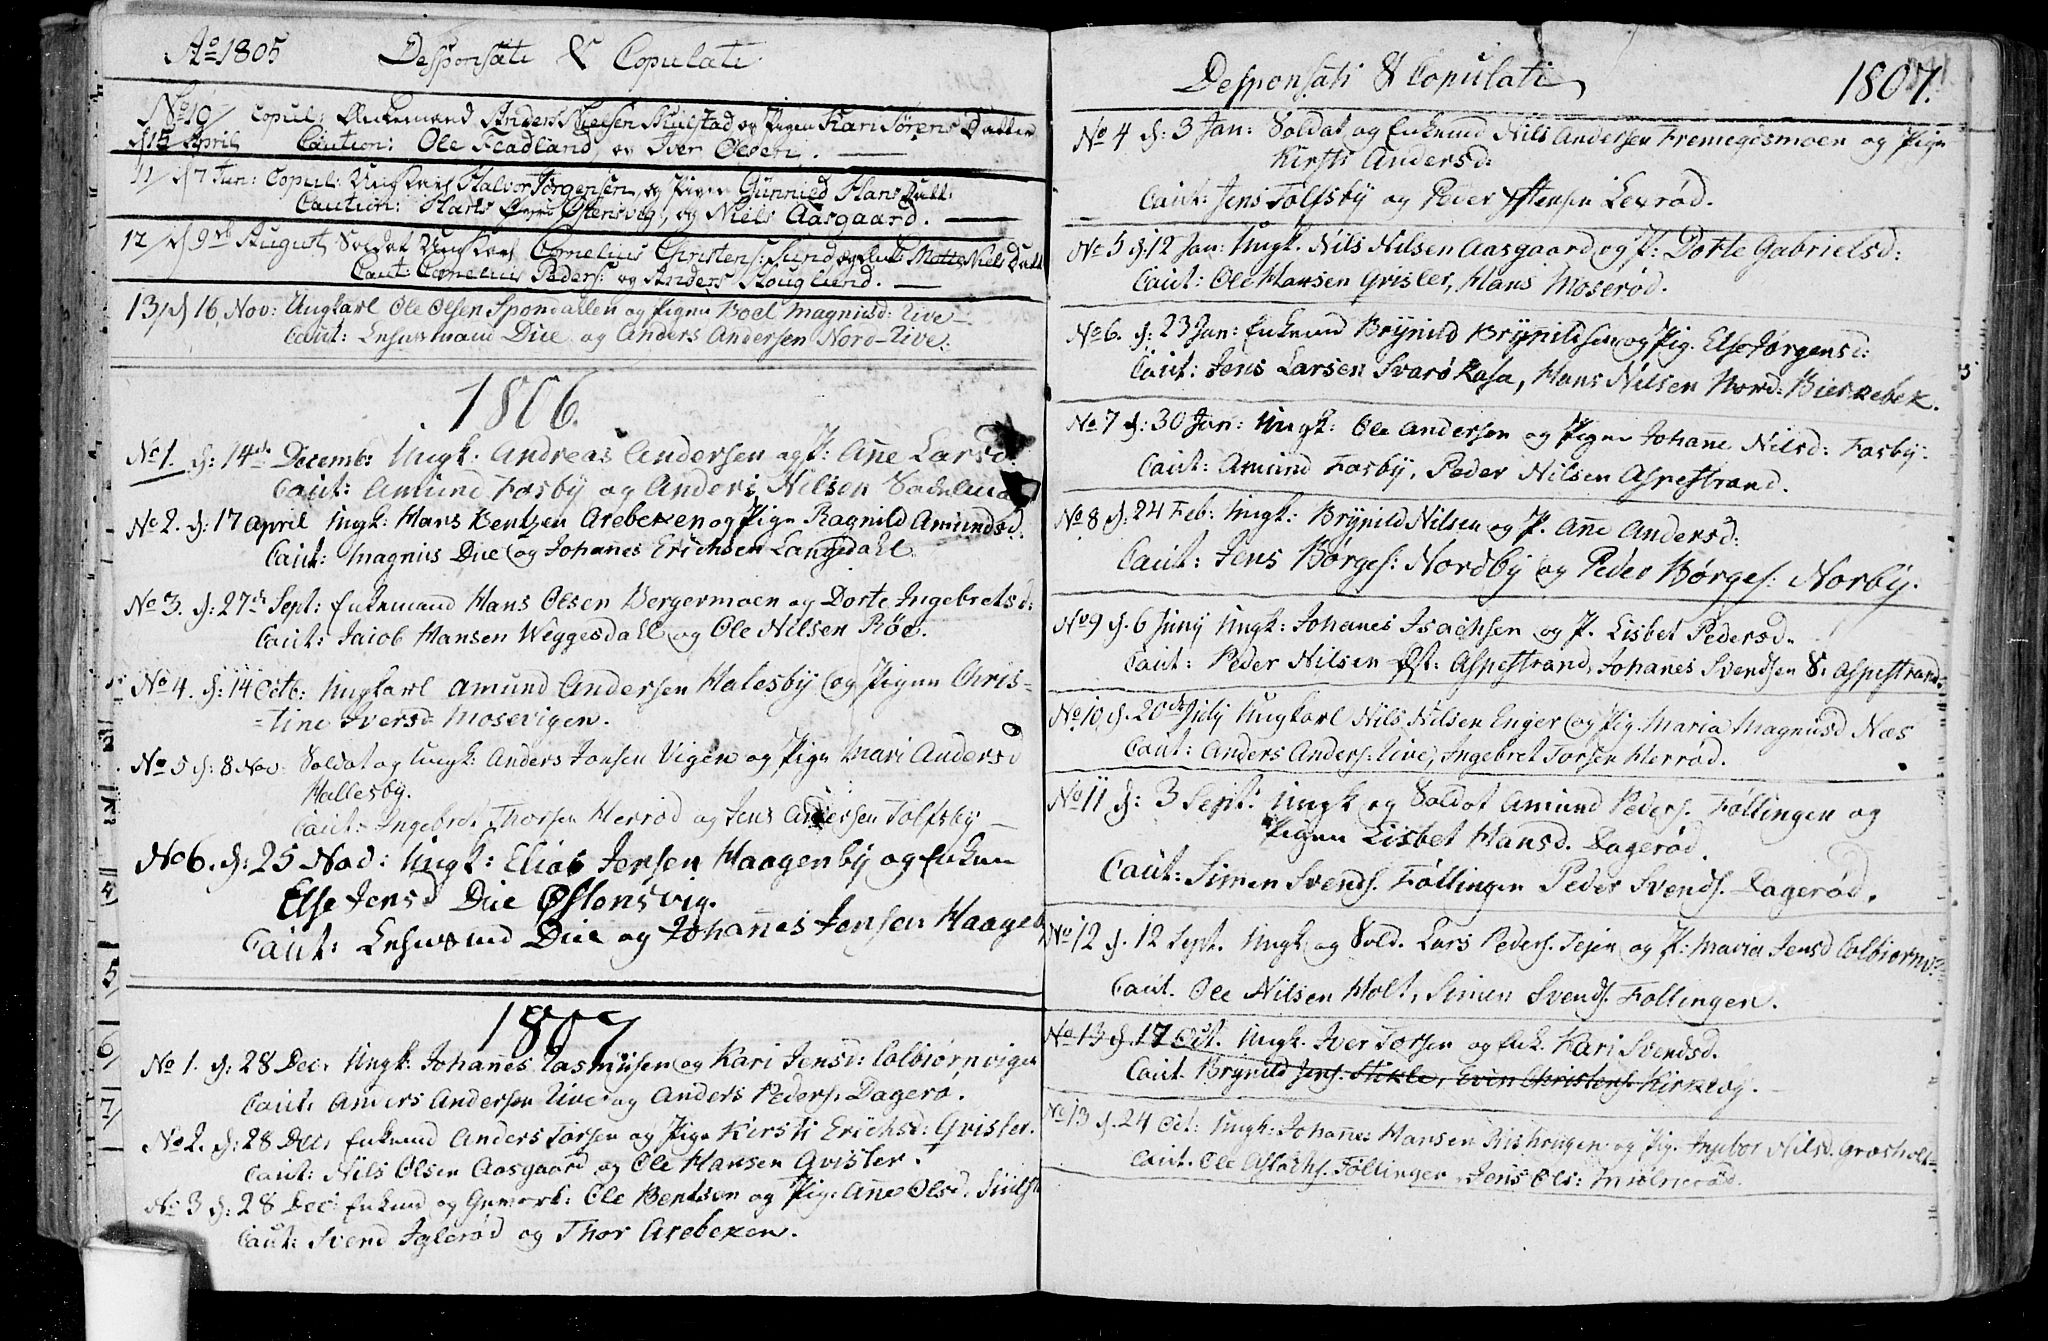 Ao 1805 Desponsati & Copulati
No 10/ Copul: Enkemand Anders Nielsen Skulstad og Pigen Kari Sørens Datter
d 15 April Caution: Ole Fladland, og Iver Olsen.
11/ d 7 Jun: Copul: Ungkarl Halvor Jørgensen, og Pigen Gunnild Hans Datt:
Caution: Hans Østensvig, og Niels Aasgaard.
12/ d 9de August, Soldat Ungkarl Cornelius Christens: Sund og Niels Datt
Caut: Cornelius Peders: og Anders Skouglund.
13/ d 16 Nov: Ungkarl Ole Olsen Spondallen og Pigen Boel Magnusd: Tive
Caut: Lensmand Due og Anders Andersen Nord-Tive:
1806.
No 1 d: 14de Decemb: Ungk. Andreas Andersen og P: Anne Larsd:
Caut: Amund Fosby og Anders Nilsen
No 2. d: 17 April Ungk: Hans Bentzen Arebeken og Pign Ragnild Amundsd:
Caut: Magnus Due og Johannes Erichsen Langsdahl
No 3. d: 27de Sept: Enkemand Hans Olsen Bergermoen og Dorte Ingebretsd:
Caut: Jacob Hansen Weggesdahl og Ole Nilsen Røe.
No 4. d: 14 Octb: Ungkarl Amund Andersen Halesby og Pigen Chris=
=tine Iversd: Mosevigen.
No 5 d: 8 Nov: Soldat og Ungk: Anders Jonsen Vigen og Pign Mari Andersd
Hallesby.
Caut: Ingebret Thorsen Herrød og Jens Andersen Tolfsby
No 6. d: 25 Nov: Ungk: Elias Jensen Haagenby og Enken
Else Jensd Due Østensvig.
Caut: Lensmd Due og Johannes Jensen Haageb
1807
No 1. d: 28 Dec: Ungk: Johannes Rasmussen og Kari Jensd: Colbiørnvigen
Caut: Anders Andersen Tive og Anders Peders: Dagerø.
No 2. d: 28 Dec: Enkemd Anders Torsen og Pign Kirsti Erichsd: Gvisler.
Caut: Nils Olsen Aasgaard og Ole Hansen Gvisler.
No 3 d: 28 Dec: Enkemd og Ole Bentsen og Pig: Anne Olsd.
Caut: Svend Iglerød og Thor Arebeken.
Desponsati & Copulati 1807.
No 4 d: 3 Jan: Soldat og Enkemd Nils Andersen Fremegosmoen og Pign
Kirsti Andersd:
Caut: Jens Tolfsby og Peder Lexrød.
No 5 d: 12 Jan: Ungk. Nils Nilsen Aasgaard og P: Dorte Gabrielsd:
Caut: Ole Hansen Gvisler, Hans Moserød.
No 6. d: 23 Jan: Enkemd Brynild Brynildsen og Pig. Else Jørgensd:
Caut: Jens Larsen Svarøkasa, Hans Nilsen Nord: Bierkebek.
No 7 d: 30 Jan: Ungk: Ole Andersen og Pigen Johanne Nilsd: Fosby.
Caut: Amund Fosby, Peder Nilsen Aspestrand.
No 8 d: 24 Feb: Ungk: Brynild Nilsen og P. Anne Andersd:
Caut: Jens Børges: Nordby og Peder Børges: Norby.
No 9 d. 6 Juny Ungk: Johanes Isachsen og P. Lisbet Pedersd.
Caut: Peder Nilsen Øst: Aspestrand, Johanes Svendsen S. Aspestrand.
No 10 d. 20de July Ungkarl Nils Nilsen Enger og Pig. Maria Magnusd Næs
Caut: Anders Anders: Tive, Ingebret Torsen Herrød.
No 11 d: 3 Sept: Ungk og Soldat Amund Peders. Føllingen og
Pigen Lisbet Hansd. Dagerød.
Caut: Simen Svends. Føllingen Peder Svends. Dagerød.
No 12 d. 12 Sept. Ungk og Sold. Lars Peders. Tejen og P: Maria Jensd Colbiørnv:
Caut. Ole Nilsen Holt, Simen Svends. Føllingen.
No 13 d. 17 Oct. Ungk. Iver Torsen og Enk. Kari Svendsd.
Caut. Brynild Jens. Stikle, Even Christens. Kirkevog.
No 13 d. 24 Oct: Ungk: Johannes Hansen Rishougen og Pig. Ingebor Nilsd. Græsholt
Caut. Ole Aslachs. Føllinger, Jens Ols: Miølnerød.